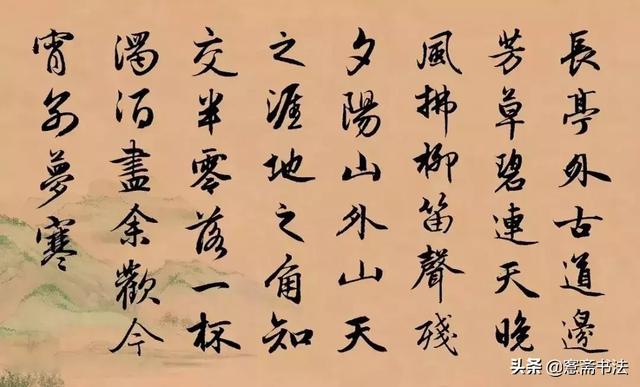 長亭外古道邊
芳草碧連天晚
風拂柳笛聲殘
夕陽山外山天
之涯地之角知
交半零落一杯
濁酒盡余歡今
宵别夢寒
头条 @窓斋书法